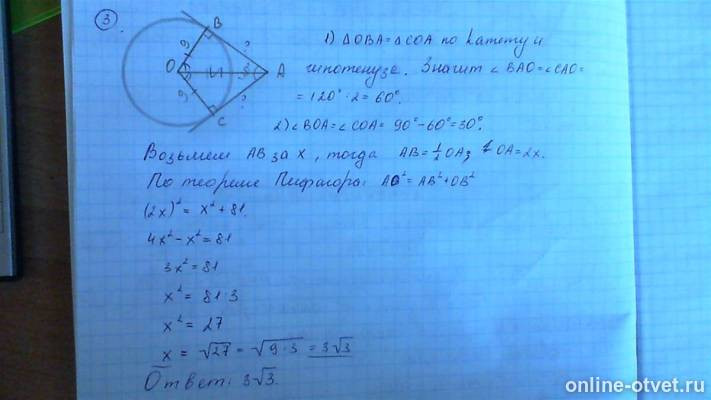 3
B
9
?
O
A
9
?
C
1) △OBA=△COA по катету и
гипотенузе. Значит ∠BAO=∠CAO=
=120°:2=60°.
2) ∠BOA=∠COA= 90°-60°=30°.
Возьмем AB за x, тогда AB=½OA; OA=2x.
По теореме Пифагора: AO²=AB²+OB²
(2x)²= x²+81.
4x²-x²=81
3x²=81
x²= 81:3
x²= 27
x = √27 = √9·3 = 3√3
Ответ: 3√3.
online-otvet.ru